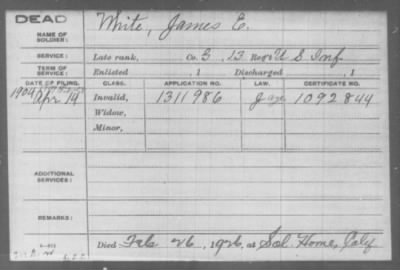 DEAD
NAME OF SOLDIER: White, James E.
SERVICE: Late rank, Co. G, 13 Reg't U S Inf
TERM OF SERVICE: Enlisted , 1 Discharged , 1
DATE OF FILING. CLASS. APPLICATION NO. LAW. CERTIFICATE NO.
1904 Apr 14 Invalid, 1311986 1092844
Widow,
Minor,
ADDITIONAL SERVICES:
REMARKS:
Died Feb 26, 1926, at Sol. Home, Calif